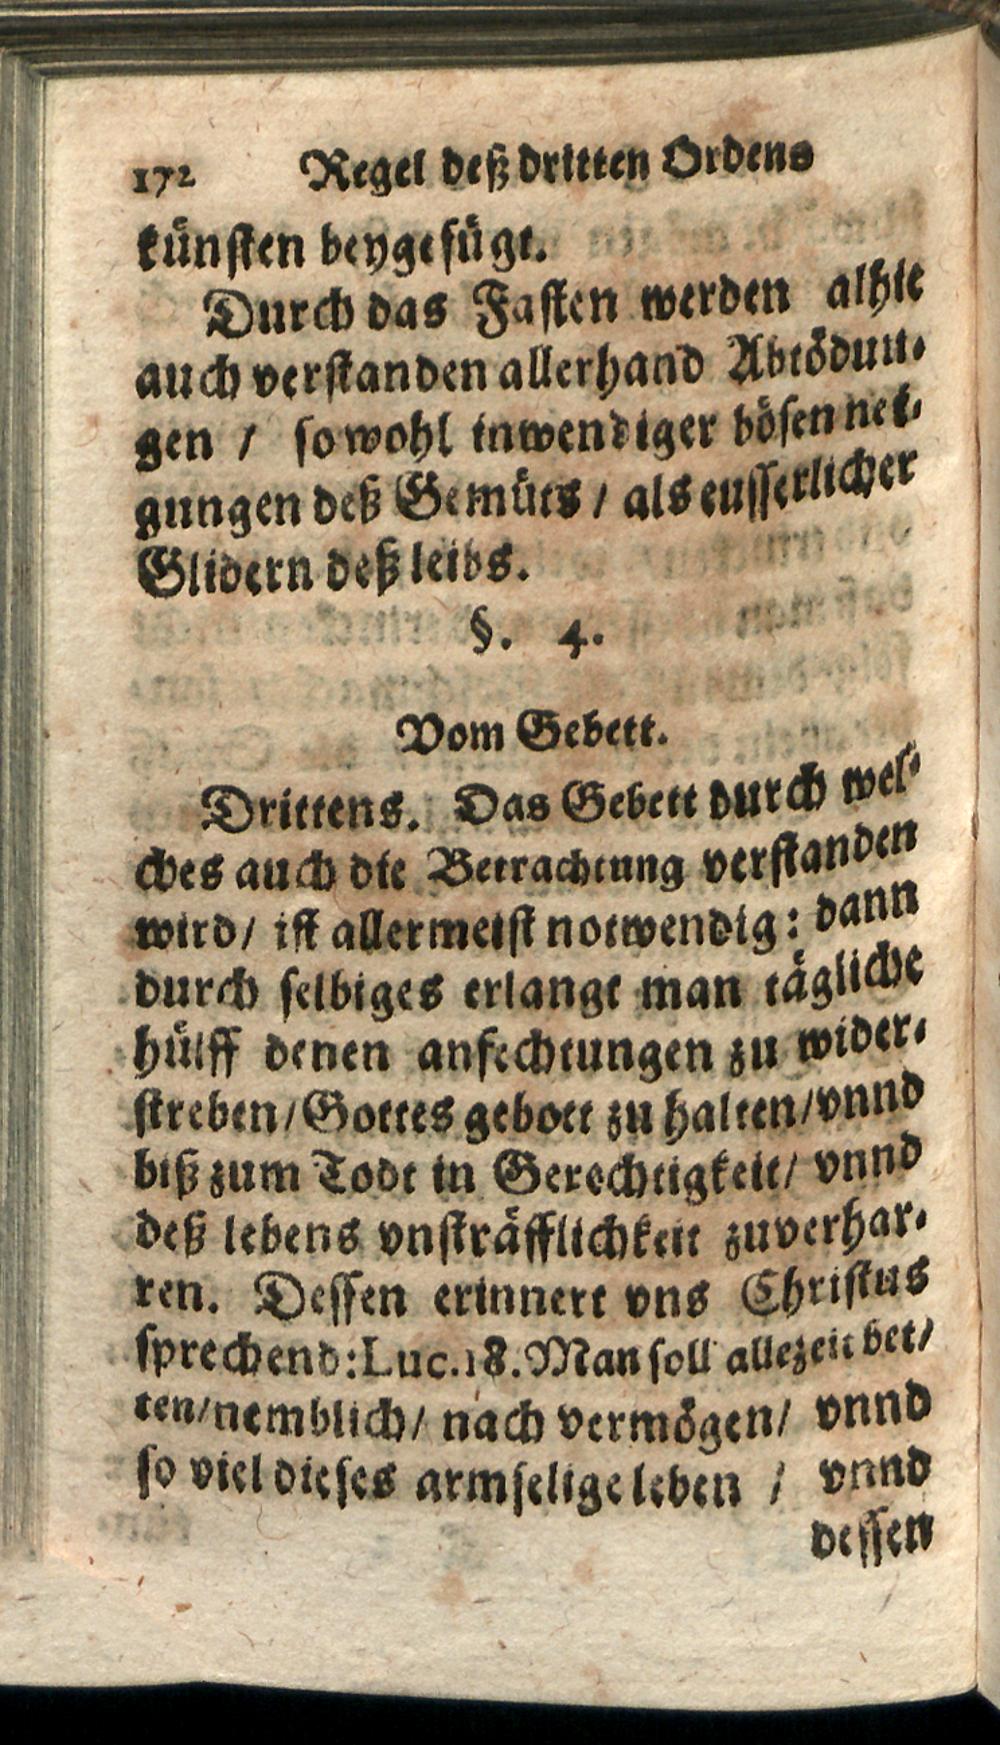 172 Regel deß dritten Ordens
künsten beygefügt.
Durch das Fasten werden alhie
auch verstanden allerhand Abtödun-
gen / so wohl inwendiger bösen nei-
gungen deß Gemüts / als eusserlicher
Glidern deß leibs.
§. 4.
Vom Gebett.
Drittens. Das Gebett durch wel-
ches auch die Betrachtung verstanden
wird/ ist allermeist notwendig: dann
durch selbiges erlangt man tägliche
hülff denen anfechtungen zu wider-
streben/Gottes gebott zu halten/vnnd
biß zum Todt in Gerechtigkeit/ vnnd
deß lebens vnsträfflichkeit zuverhar-
ren. Dessen erinnert vns Christus
sprechend:Luc.18.Man soll allezeit bet/
ten/nemblich/ nach vermögen/ vnnd
so viel dieses armselige leben / vnnd
dessen